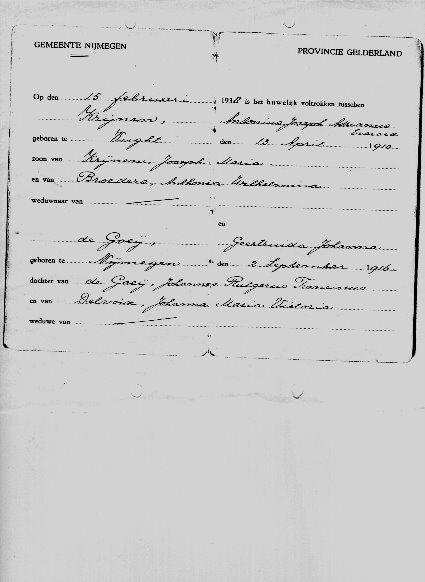 GEMEENTE NIJMEGEN
PROVINCIE GELDERLAND
Op den 15 februari 1938 is het huwelijk voltrokken tusschen
Krijnen, Antonius Joseph Adrianus
geboren te Vught den 13 April 1910
zoon van Krijnen, Joseph Maria
en van Broeders, Anthonia Wilhelmina
weduwnaar van
en
de Goeij, Geertruida Johanna
geboren te Nijmegen den 2 September 1916
dochter van de Goeij, Johannes Rutgerus Franciscus
en van Delvoix, Johanna Maria Victoria
weduwe van